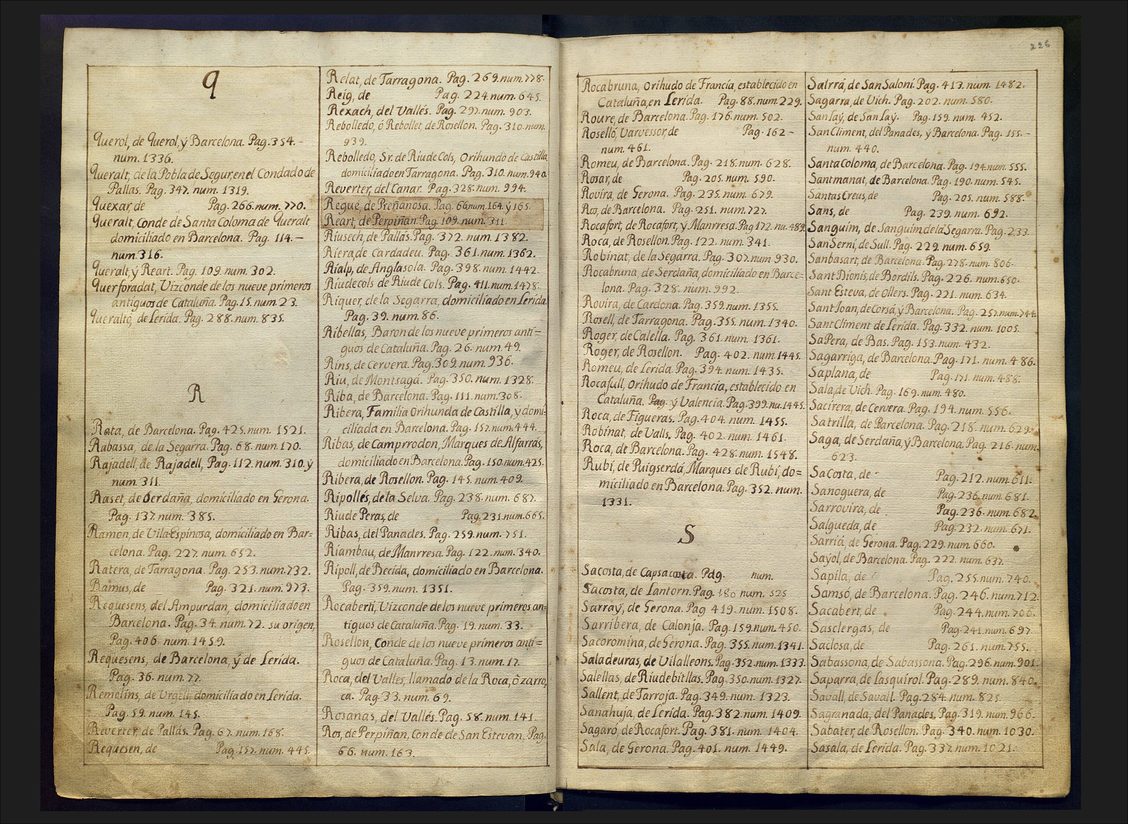 q
Querol, de Querol, ÿ Barcelona. Pag. 354. -
num. 1336.
Queralt, de la Pobla de Segur, en el Condado de
Pallas. Pag. 347. num. 1319.
Quexar, de Pag. 266. num. 770.
Queralt, Conde de Santa Coloma de Queralt
domiciliado en Barcelona. Pag. 114. -
num. 316.
Queralt, ÿ Reart. Pag. 109. num. 302.
Querforadat, Vizconde de los nueve primeros
antiguos de Cataluña. Pag. 15. num. 23.
Queraltó, de Lerida. Pag. 288. num. 835.
R
Rata, de Barcelona. Pag. 425. num. 1521.
Rabassa, de la Segarra. Pag. 68. num. 170.
Rajadell, de Rajadell, Pag. 112. num. 310. ÿ
num. 311.
Raset, de Serdaña, domiciliado en Gerona.
Pag. 137. num. 385.
Ramon, de Vila-Espinosa, domiciliado en Bar-
celona. Pag. 227. num. 652.
Ratera, de Tarragona. Pag. 253. num. 732.
Ramis, de Pag. 321. num. 973.
Requesens, del Ampurdan, domiciliado en
Barcelona. Pag. 34. num. 72. su origen,
Pag. 406. num. 1459.
Requesens, de Barcelona, ÿ de Lerida.
Pag. 36. num. 77.
Remolins, de Urgell, domiciliado en Lerida.
Pag. 59. num. 145.
Reverter, de Pallás. Pag. 67. num. 168.
Requesen, de Pag. 152. num. 445.
Relat, de Tarragona. Pag. 269. num. 778.
Reig, de Pag. 224. num. 645.
Rexach, del Vallés. Pag. 297. num. 903.
Rebolledo, ó Rebollet, de Rosellon. Pag. 310. num.
939.
Rebolledo, Sr. de Riude Cols, Orihundo de Castilla,
domiciliado en Tarragona. Pag. 310. num. 940.
Reverter, del Canar. Pag. 328. num. 994.
Regué, de Preñanosa. Pag. 66. num. 164. ÿ 165.
Reart, de Perpiñan. Pag. 109. num. 311.
Riusech, de Pallás. Pag. 372. num. 1382.
Riera, de Cardadeu. Pag. 361. num. 1362.
Rialp, de Anglasola. Pag. 398. num. 1442.
Riudecols de Riude Cols. Pag. 411. num. 1478.
Riquer, de la Segarra, domiciliado en Lerida
Pag. 39. num. 86.
Ribellas, Baron de los nueve primeros anti=
guos de Cataluña. Pag. 26. num. 49.
Rins, de Cervera. Pag. 309. num. 936.
Riu, de Montsagá. Pag. 350. num. 1328.
Riba, de Barcelona. Pag. 111. num. 308.
Ribera, Familia Orihunda de Castilla, y domi-
ciliada en Barcelona. Pag. 152. num. 444.
Ribas, de Camprrodon, Marques de Alfarrás,
domiciliado en Barcelona. Pag. 150. num. 425.
Ribera, de Rosellon. Pag. 145. num. 409.
Ripollés, de la Selva. Pag. 238. num. 687.
Riude Peras, de Pag. 231. num. 665.
Ribas, del Panades. Pag. 259. num. 751.
Riambau, de Manrresa. Pag. 122. num. 340.
Ripoll, de Becida, domiciliado en Barcelona.
Pag. 359. num. 1351.
Rocaberti, Vizconde de los nueve primeros an-
tiguos de Cataluña. Pag. 19. num. 33.
Rosellon, Conde de los nueve primeros anti=
guos de Cataluña. Pag. 13. num. 17.
Roca, del Valles, llamado de la Roca, ó zarro-
ca. Pag. 33. num. 69.
Rosanas, del Vallés. Pag. 58. num. 141.
Ros, de Perpiñan, Conde de San Estevan. Pag.
66. num. 163.
226
Rocabruna, Orihudo de Francia, establecido en
Cataluña, en Lerida. Pag. 88. num. 229.
Roure, de Barcelona. Pag. 176. num. 502.
Roselló, Varvessor, de Pag. 162 -
num. 461.
Romeu, de Barcelona. Pag. 218. num. 628.
Rosar, de Pag. 205. num. 590.
Rovira, de Gerona. Pag. 235. num. 679.
Ros, de Barcelona. Pag. 251. num. 727.
Rocafort, de Rocafort, y Manrresa. Pag. 172. nu. 489.
Roca, de Rosellon. Pag. 122. num. 341.
Robinat, de la Segarra. Pag. 307. num. 930.
Rocabruna, de Serdaña, domiciliado en Barce-
lona. Pag. 328. num. 992.
Rovira, de Cardona. Pag. 359. num. 1355.
Rosell, de Tarragona. Pag. 355. num. 1340.
Roger, de Calella. Pag. 361. num. 1361.
Roger, de Rosellon. Pag. 402. num. 1445.
Romeu, de Lerida. Pag. 394. num. 1435.
Rocafull, Orihudo de Francia, establecido en
Cataluña. Pag. y Valencia. Pag. 399. nu. 1445.
Roca, de Figueras. Pag. 404. num. 1455.
Robinat, de Valls. Pag. 402. num. 1461.
Roca, de Barcelona. Pag. 428. num. 1548.
Rubí, de Puigserdá, Marques de Rubí, do=
miciliado en Barcelona. Pag. 352. num.
1331.
S
Sacosta, de Capsacosta. Pag. num.
Sacosta, de Lantorn. Pag. 180. num. 525
Sarray, de Gerona. Pag. 419. num. 1508.
Sarribera, de Calonja. Pag. 159. num. 450.
Sacoromina, de Gerona. Pag. 355. num. 1341.
Saladeuras, de Vilalleons. Pag. 352. num. 1333.
Salellas, de Riudebitllas. Pag. 350. num. 1327.
Sallent, de Tarroja. Pag. 349. num. 1323.
Sanahuja, de Lerida. Pag. 382. num. 1409.
Sagaró, de Rocafort. Pag. 381. num. 1404.
Sala, de Gerona. Pag. 401. num. 1449.
Salrrá, de San Saloni. Pag. 413. num. 1482.
Sagarra, de Vich. Pag. 202. num. 580.
San Laÿ, de San Laÿ. Pag. 159. num. 452.
San Climent, del Panades, y Barcelona. Pag. 155. -
num. 440.
Santa Coloma, de Barcelona. Pag. 194. num. 555.
Santmanat, de Barcelona. Pag. 190. num. 545.
Santas Creus, de Pag. 205. num. 588.
Sans, de Pag. 239. num. 692.
Sanguim, de Sanguim, de la Segarra. Pag. 233.
San Serni, de Sull. Pag. 229. num. 659.
Sanbasart, de Barcelona. Pag. 278. num. 806.
Sant Dionis, de Bordils. Pag. 226. num. 650.
Sant Esteva, de Ollers. Pag. 221. num. 634.
Sant Joan, de Corsá, y Barcelona. Pag. 257. num. 744.
Sant Climent de Lerida. Pag. 332. num. 1005.
Sa Pera, de Bas. Pag. 153. num. 432.
Sagarriga, de Barcelona. Pag. 171. num. 486.
Saplana, de Pag. 171. num. 488.
Sala, de Vich. Pag. 169. num. 480.
Sacirera, de Cervera. Pag. 194. num. 556.
Satrilla, de Barcelona. Pag. 218. num. 629.
Saga, de Serdaña, y Barcelona. Pag. 216. num.
623.
Sa Costa, de Pag. 212. num. 611.
Sanoguera, de Pag. 236. num. 681.
Sarrovira, de Pag. 236. num. 682.
Salgueda, de Pag. 232. num. 671.
Sarriá, de Gerona. Pag. 229. num. 660.
Saÿol, de Barcelona. Pag. 222. num. 637.
Sapila, de Pag. 255. num. 740.
Samsó, de Barcelona. Pag. 246. num. 712.
Sacabert, de Pag. 244. num. 706.
Sasclergas, de Pag. 241. num. 697.
Saclosa, de Pag. 261. num. 755.
Sabassona, de Sabassona. Pag. 296. num. 901.
Saparra, de Lasquirol. Pag. 289. num. 840.
Savall, de Savall. Pag. 284. num. 825.
Sagranada, del Panades. Pag. 319. num. 966.
Sabater, de Rosellon. Pag. 340. num. 1030.
Sasala, de Lerida. Pag. 337. num. 1021.